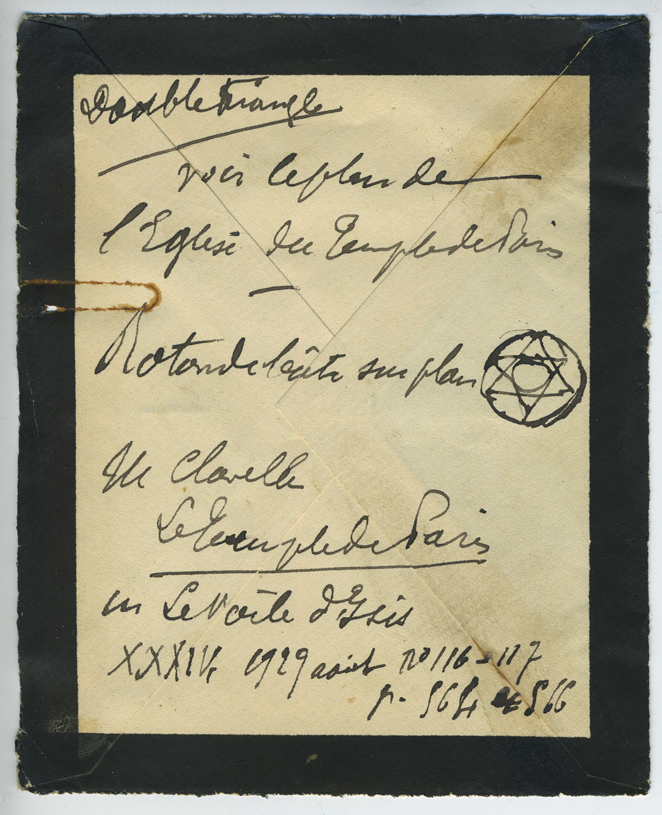 Double triangle
voir le plan de
l'Eglise du Temple de Paris
Rotonde bâtie sur plan
M Clavelle
Le Temple de Paris
in Le Voile d'Isis
XXXIV, 1929 août no 116-117
p. 564 et 566